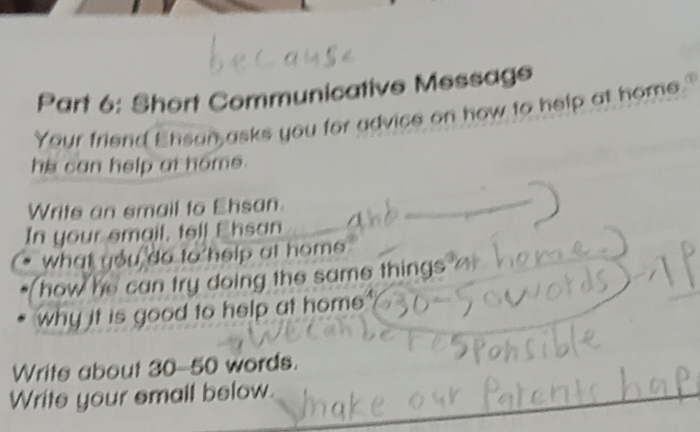 because
Part 6: Short Communicative Message
Your friend Ehsan, asks you for advice on how to help at home.
he can help at home.
Write an email to Ehsan.
In your email, tell Ehsan and
• what you do to help at home
• (how he can try doing the same things at home.)
• why it is good to help at home (30-50 words) → 1P
We can be responsible
Write about 30–50 words.
Write your email below.
make our Parents hap